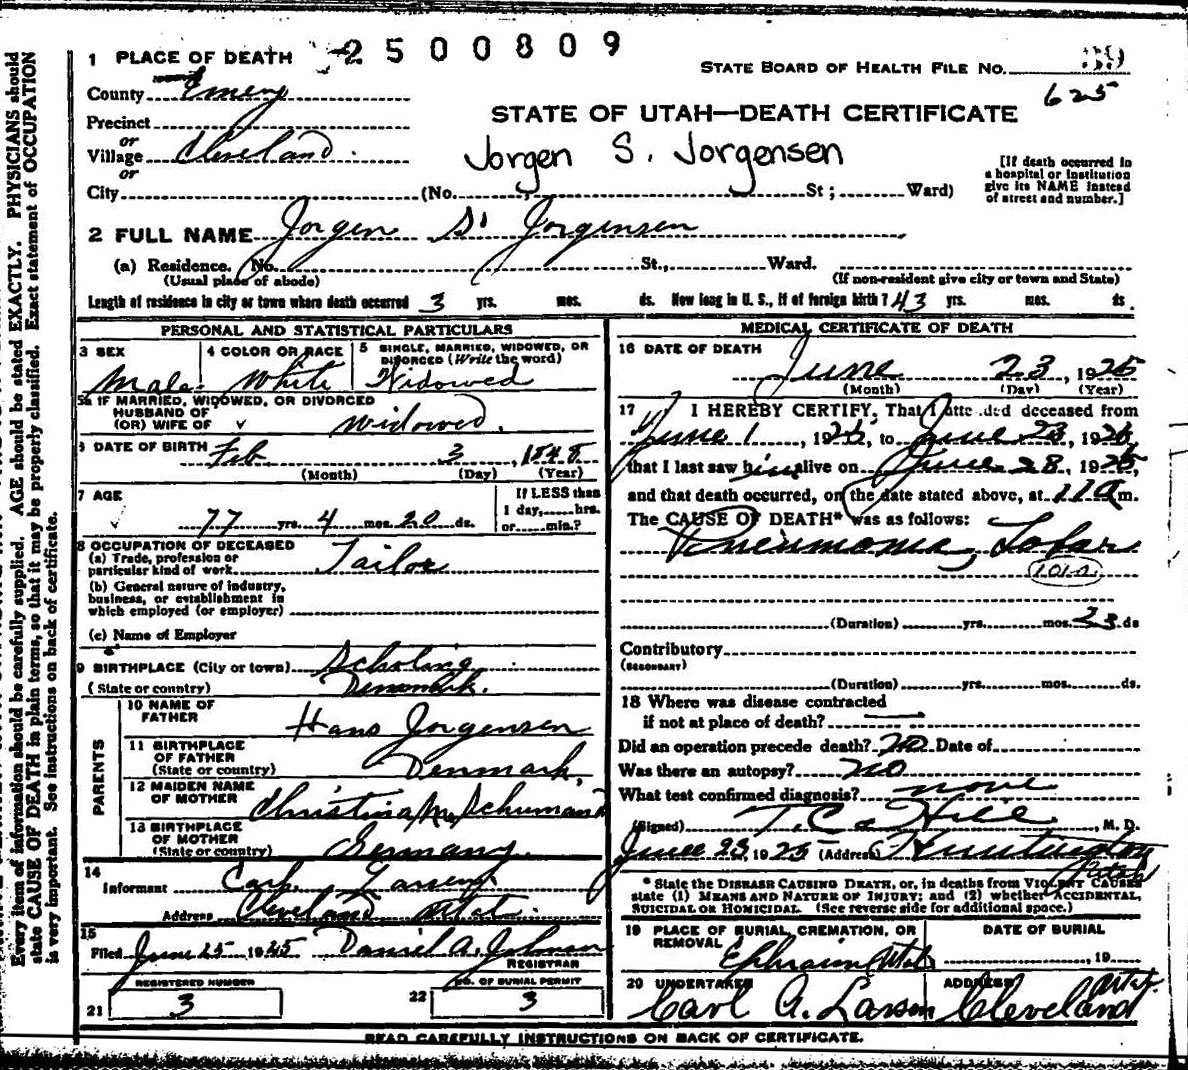 2500809
1 PLACE OF DEATH
STATE BOARD OF HEALTH FILE NO.
625
County Emery
STATE OF UTAH—DEATH CERTIFICATE
Precinct
or
Village Cleveland
Jorgen S. Jorgensen
or
City (No. St; Ward)
[If death occurred in
a hospital or institution
give its NAME instead
of street and number.]
2 FULL NAME Jorgen S. Jorgensen
(a) Residence. No. St., Ward.
(Usual place of abode) (If non-resident give city or town and State)
Length of residence in city or town where death occurred 3 yrs. mos. ds. How long in U. S., if of foreign birth? 43 yrs. mos. ds.
PERSONAL AND STATISTICAL PARTICULARS
3 SEX 4 COLOR OR RACE 5 SINGLE, MARRIED, WIDOWED, OR
DIVORCED (Write the word)
Male White Widowed
5a IF MARRIED, WIDOWED, OR DIVORCED
HUSBAND OF
(OR) WIFE OF Widowed.
6 DATE OF BIRTH Feb. 3, 1848
(Month) (Day) (Year)
7 AGE If LESS than
1 day, hrs.
77 yrs. 4 mos. 20 ds. or min.?
8 OCCUPATION OF DECEASED
(a) Trade, profession or
particular kind of work Tailor
(b) General nature of industry,
business, or establishment in
which employed (or employer)
(c) Name of Employer
9 BIRTHPLACE (City or town)
(State or country) Denmark.
PARENTS
10 NAME OF
FATHER Hans Jorgensen
11 BIRTHPLACE
OF FATHER
(State or country) Denmark.
12 MAIDEN NAME
OF MOTHER Christina M. Schumand
13 BIRTHPLACE
OF MOTHER
(State or country) Germany.
14
Informant Larsen
Address Cleveland Utah.
15
Filed June 25 1925 Daniel A. Johnson
REGISTRAR
REGISTERED NUMBER NO. OF BURIAL PERMIT
21 3 22 3
MEDICAL CERTIFICATE OF DEATH
16 DATE OF DEATH
June 23, 1925
(Month) (Day) (Year)
17 I HEREBY CERTIFY, That I attended deceased from
June 1, 1925, to June 23, 1925,
that I last saw him alive on June 23, 1925,
and that death occurred, on the date stated above, at 11 a m.
The CAUSE OF DEATH* was as follows:
Pneumonia, Lobar
101a
(Duration) yrs. mos. 23 ds
Contributory
(SECONDARY)
(Duration) yrs. mos. ds.
18 Where was disease contracted
if not at place of death?
Did an operation precede death? no Date of
Was there an autopsy? no
What test confirmed diagnosis? none
(Signed) T. C. Hill, M. D.
June 23, 1925 (Address) Huntington
Utah
* State the DISEASE CAUSING DEATH, or, in deaths from VIOLENT CAUSES
state (1) MEANS AND NATURE OF INJURY; and (2) whether ACCIDENTAL,
SUICIDAL OR HOMICIDAL. (See reverse side for additional space.)
19 PLACE OF BURIAL, CREMATION, OR
REMOVAL Ephraim Utah
DATE OF BURIAL
, 19
20 UNDERTAKER ADDRESS
Carl A. Larsen Cleveland Utah.
READ CAREFULLY INSTRUCTIONS ON BACK OF CERTIFICATE.
Every item of information should be carefully supplied. AGE should be stated EXACTLY. PHYSICIANS should
state CAUSE OF DEATH in plain terms, so that it may be properly classified. Exact statement of OCCUPATION
is very important. See instructions on back of certificate.